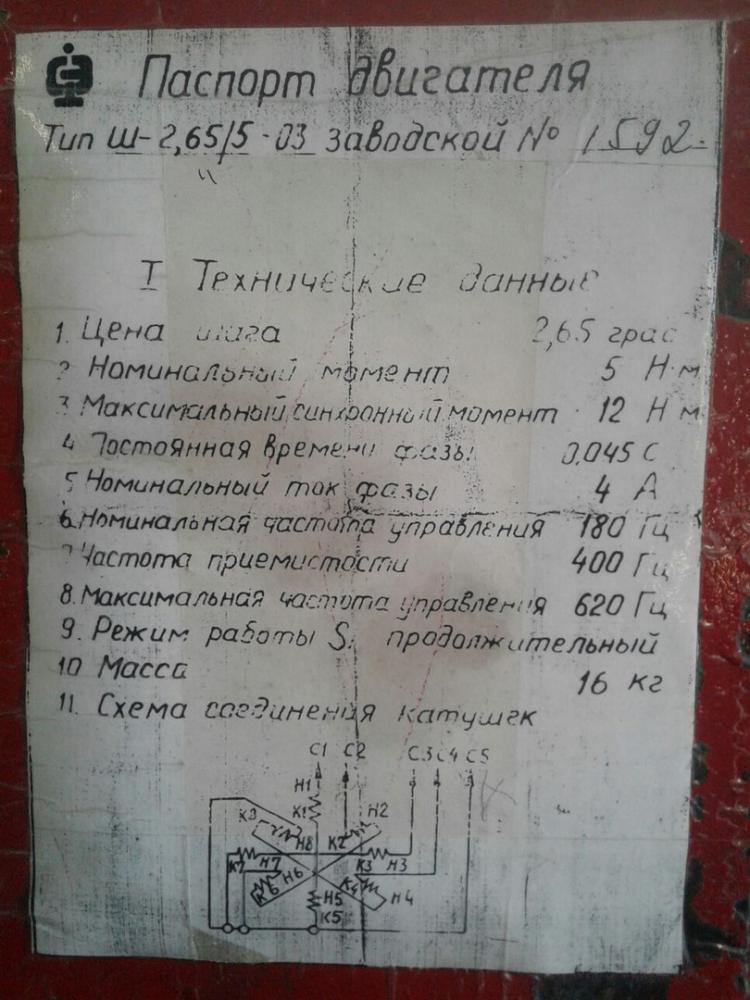 Паспорт двигателя
Тип Ш-2,65/5-03 заводской № 1592.
I Технические данные
1. Цена шага 2,65 град
2 Номинальный момент 5 Н·м
3 Максимальный синхронный момент 12 Н м
4 Постоянная времени фазы 0,045 С
5 Номинальный ток фазы 4 А
6. Номинальная частота управления 180 Гц
7 Частота приемистости 400 Гц
8. Максимальная частота управления 620 Гц
9. Режим работы S1 продолжительный
10 Масса 16 кг
11. Схема соединения катушек
С1 С2 С3 С4 С5
Н1
К1 Н2
К8 Н8 К2
К7 Н7 Н6 К3 Н3
К6 К4 Н4
Н5
К5